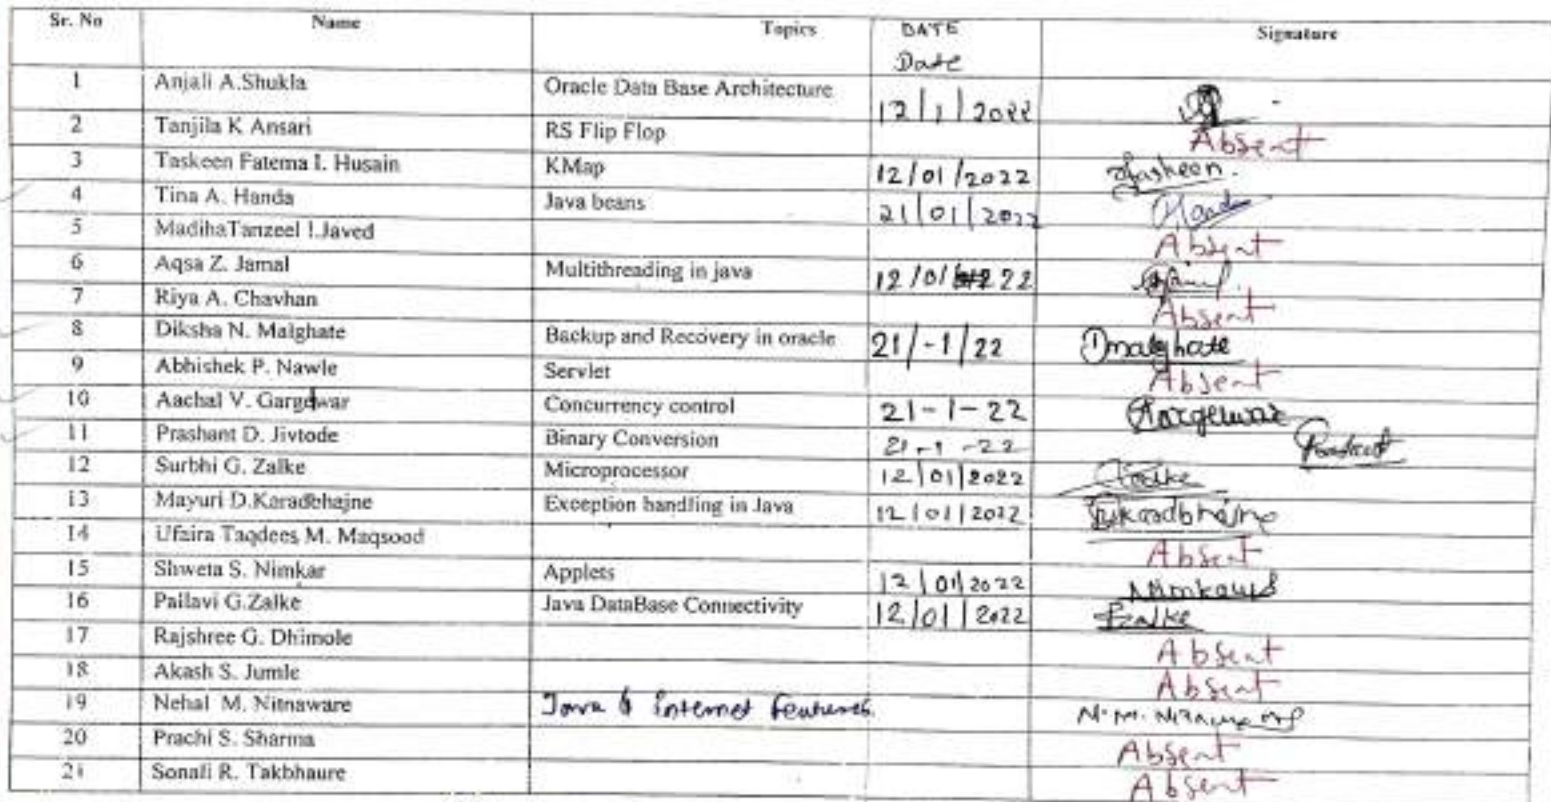 Sr. No Name Topics DATE Signature
Date
1 Anjali A.Shukla Oracle Data Base Architecture 12/1/2022
2 Tanjila K Ansari RS Flip Flop Absent
3 Taskeen Fatema I. Husain KMap 12/01/2022 Taskeen.
4 Tina A. Handa Java beans 21/01/2022 Handa
5 MadihaTanzeel I.Javed Absent
6 Aqsa Z. Jamal Multithreading in java 12/01/22
7 Riya A. Chavhan Absent
8 Diksha N. Malghate Backup and Recovery in oracle 21/-1/22 Dmalghate
9 Abhishek P. Nawle Servlet Absent
10 Aachal V. Gargelwar Concurrency control 21-1-22 Aargelwar
11 Prashant D. Jivtode Binary Conversion 21-1-22
12 Surbhi G. Zalke Microprocessor 12/01/2022 Zalke
13 Mayuri D.Karadbhajne Exception handling in Java 12/01/2022 karadbhajne
14 Ufaira Taqdees M. Maqsood Absent
15 Shweta S. Nimkar Applets 12/01/2022
16 Pallavi G.Zalke Java DataBase Connectivity 12/01/2022 Zalke
17 Rajshree G. Dhimole Absent
18 Akash S. Jumle Absent
19 Nehal M. Nitnaware Java & Internet features. N.M. Nitnaware
20 Prachi S. Sharma Absent
21 Sonali R. Takbhaure Absent